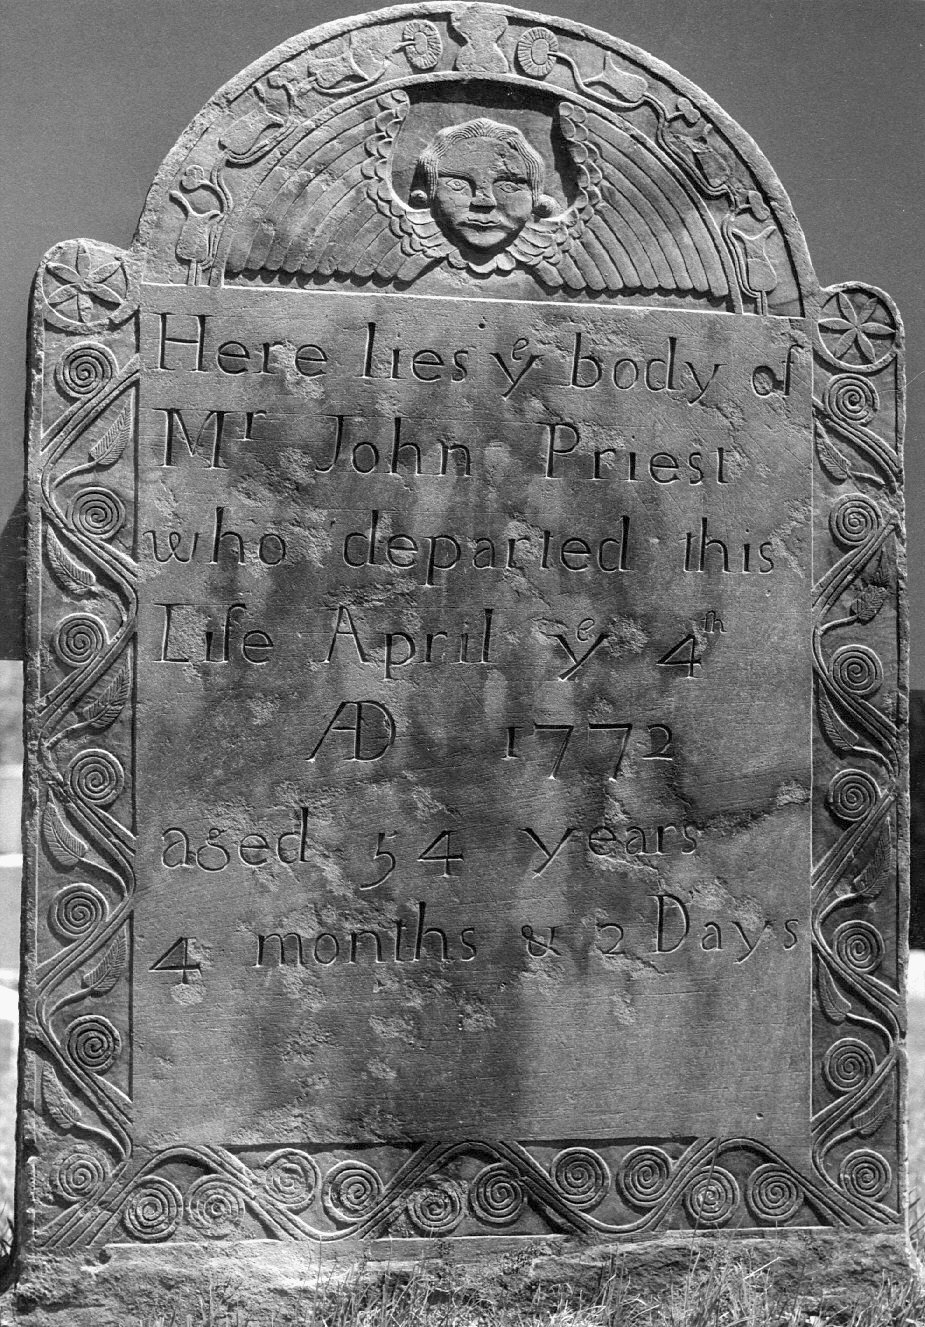 Here lies yᵉ body of
Mʳ John Priest
who departed this
Life April yᵉ 4ᵗʰ
AD 1772
aged 54 years
4 months & 2 Days